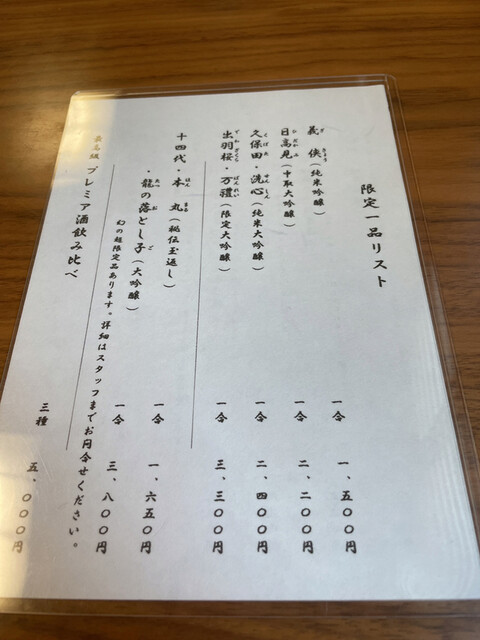 限定一品リスト
義侠（純米吟醸） 一合 一、五〇〇円
日高見（中取大吟醸） 一合 二、二〇〇円
久保田・洗心（純米大吟醸） 一合 二、四〇〇円
出羽桜・万禮（限定大吟醸） 一合 三、三〇〇円
十四代・本丸（秘伝玉返し） 一合 一、六五〇円
・龍の落とし子（大吟醸） 一合 三、八〇〇円
幻の超限定品あります。詳細はスタッフまでお問合せください。
最高級 プレミア酒飲み比べ 三種 五、〇〇〇円